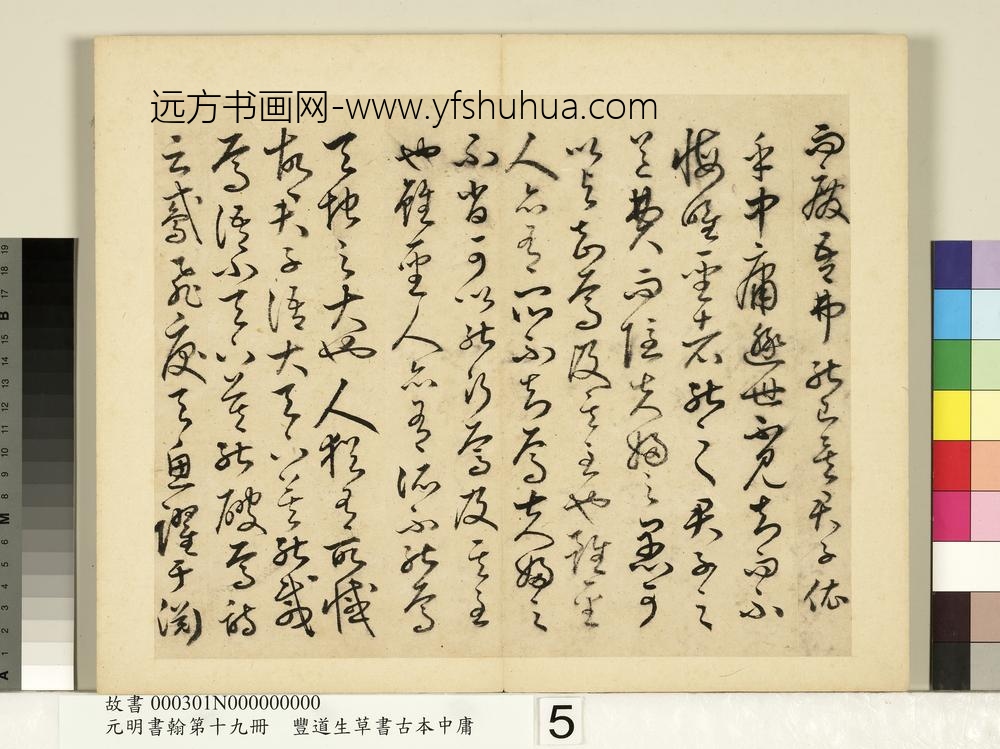 远方书画网-www.yfshuhua.com
而廢吾弗能已矣君子依
乎中庸遯世不見知而不
悔唯聖者能之君子之
道費而隱夫婦之愚可
以與知焉及其至也雖聖
人亦有所不知焉夫婦之
不肖可以能行焉及其至
也雖聖人亦有所不能焉
天地之大也人猶有所憾
故君子語大天下莫能載
焉語小天下莫能破焉詩
云鳶飛戾天魚躍于淵
故書 000301N000000000
元明書翰第十九冊 豐道生草書古本中庸
5
A 1 2 3 4 5 6 M 8 9 10 11 12 13 14 15 B 17 18 19